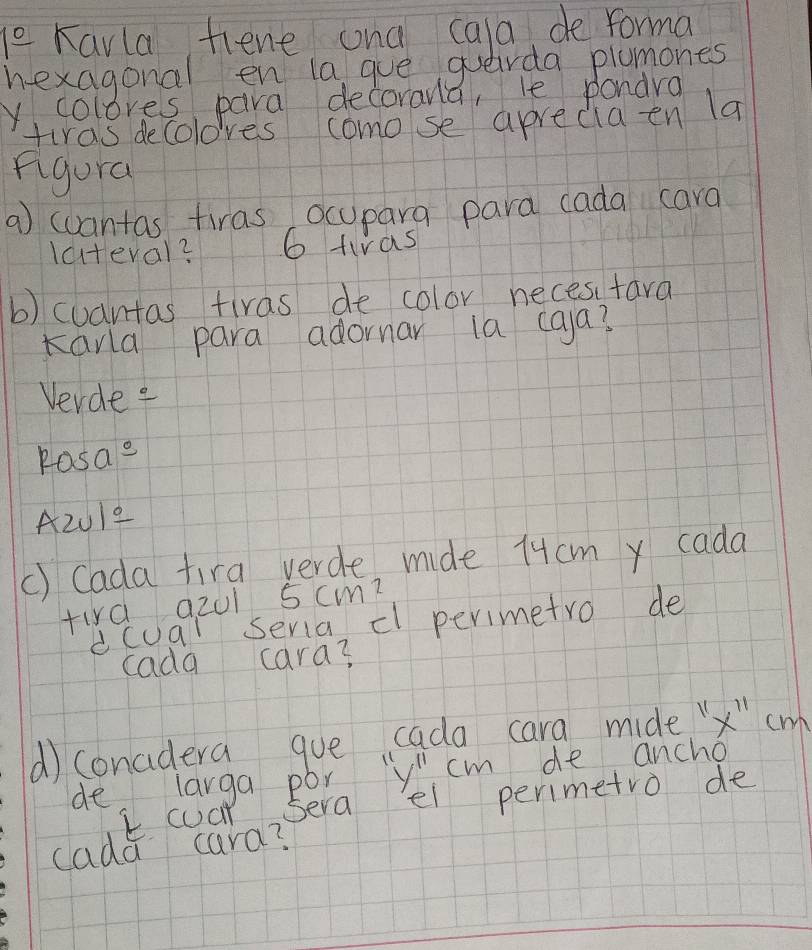 1º Karla tiene una caja de forma
hexagonal en la que guarda plumones
y colores para decorarla, le pondra
tiras de colores como se aprecia en la
Figura
a) cuantas tiras ocupara para cada cara
lateral? 6 tiras
b) cuantas tiras de color necesitara
Karla para adornar la caja?
Verdeº
Rosaº
Azulº
c) Cada tira verde mide 14 cm y cada
tira azul 5 cm?
¿cual seria el perimetro de
cada cara?
d) conadera que cada cara mide "x" cm
de larga por "y" cm de ancho
¿ cual sera el perimetro de
cada cara?